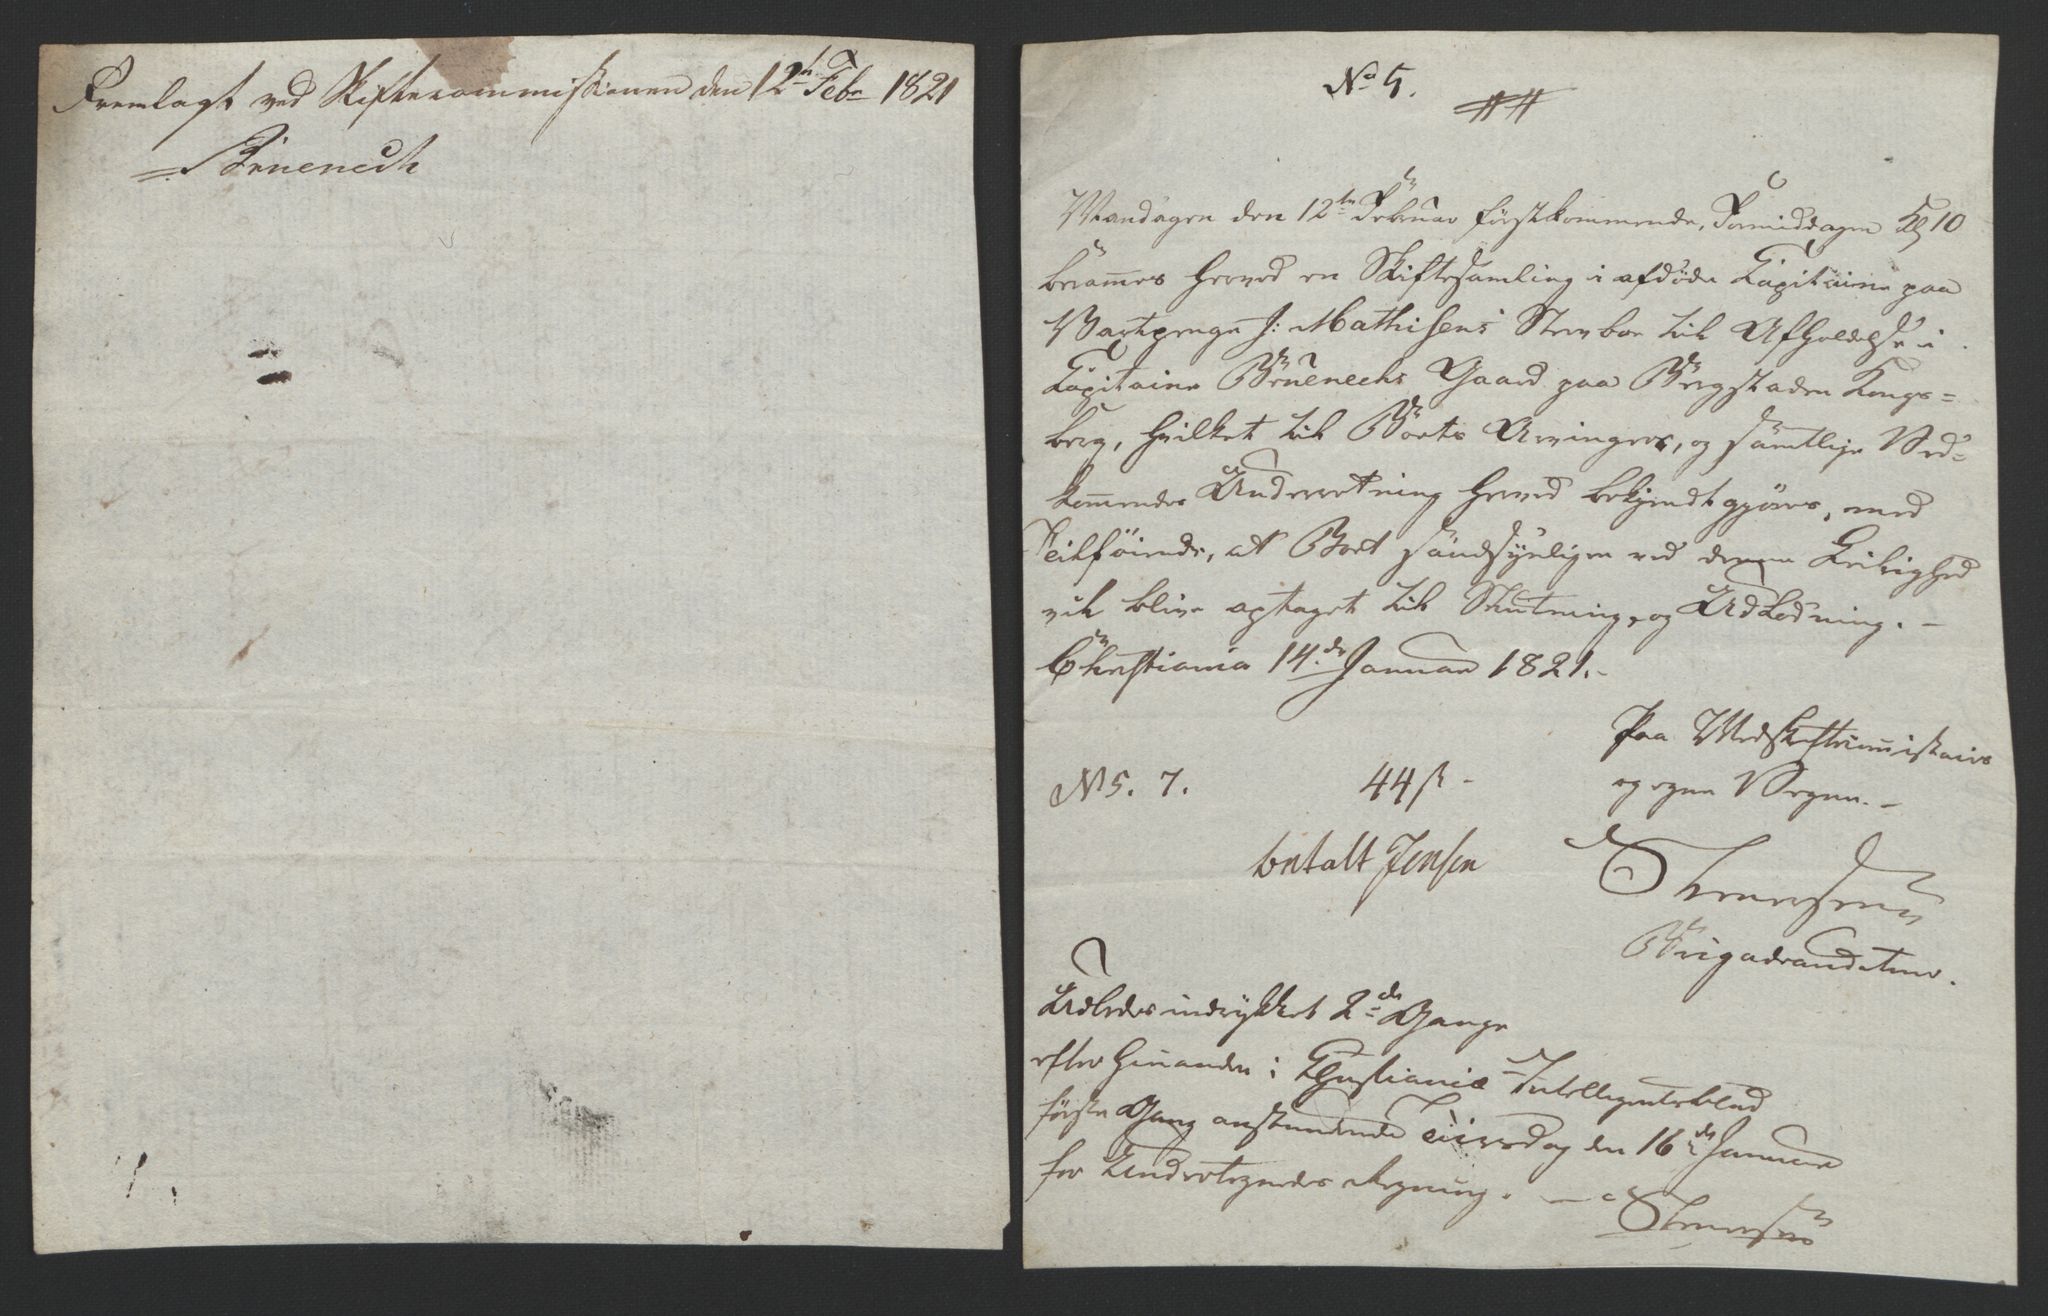 Fremlagt ved Skiftecommissionen den 12te Febr 1821
Brueneck
No 5.
Mandagen den 12te Februar förstkommende, Formiddagen Kl 10
berammes herved en Skiftesamling i afdøde Capitaine paa
Vartpenge J: Mathisens Stervboe til Afholdelse i
Capitaine Bruenechs Gaard paa Bergstaden Kongs=
berg, hvilket til Boets Arvingers, og samtlige Ved=
kommendes Underretning herved bekjendtgjöres, med
Teilföiende, at Boet sandsynligen ved denne Leilighed
vil blive optaget til Slutning, og Udlodning. –
Christiania 14de Januar 1821. –
Paa Medskifteforvalters
og egne Vegne. –
N 5. 7. 44 ß –
betalt Jensen
Brigadeauditeur.
Udbedes indrykket 2de Gange
efter hinanden i Christiania Intelligentsblad
förste Gang anstundende Tiirsdag den 16de Januar
for Undertegnedes Regning. –